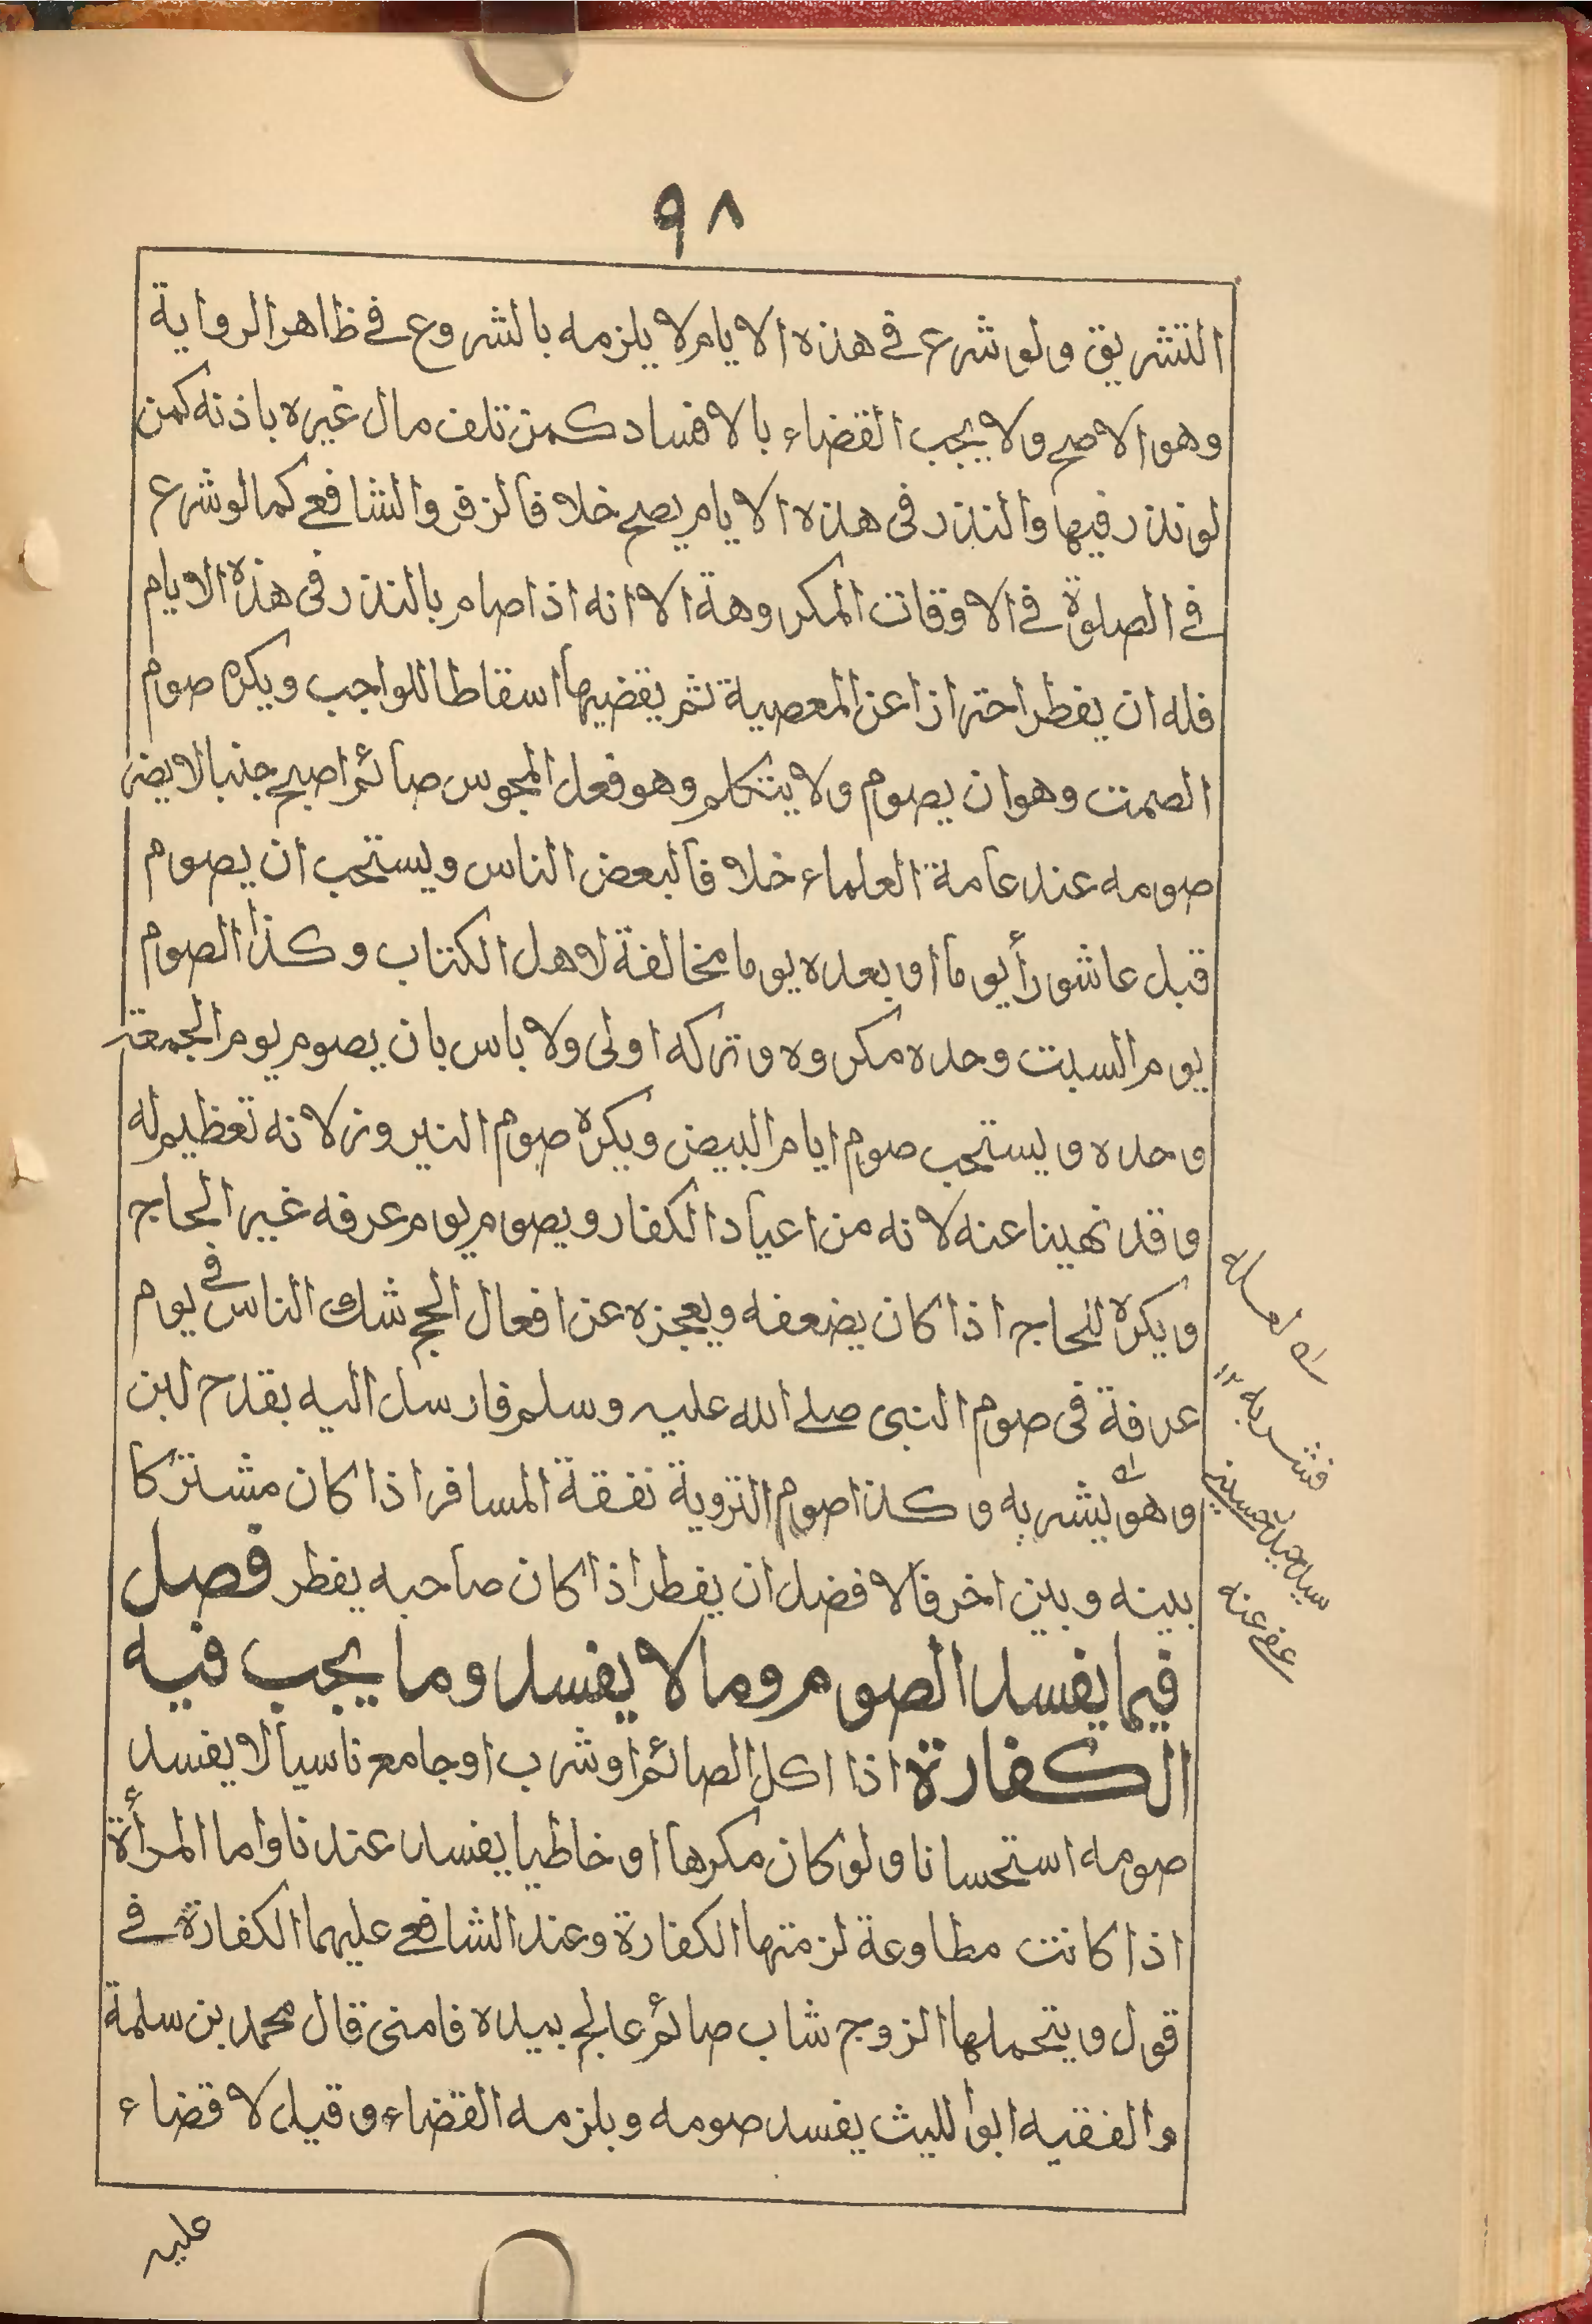 ٩٨
التشريق ولو شرع فى هذه الايام لا يلزمه بالشروع فى ظاهر الرواية
وهو الاصح ولا يجب القضاء بالافساد كمن تلف مال غيره باذنه كمن
لو نذر فيها والنذر فى هذه الايام يصح خلافا لزفر والشافعى كما لو شرع
فى الصلوة فى الاوقات المكروهة الا انه اذا صام بالنذر فى هذه الايام
فله ان يفطر احترازا عن المعصية ثم يقضيها اسقاطا للواجب ويكره صوم
الصمت وهو ان يصوم ولا يتكلم وهو فعل المجوس صائم اصبح جنبا لا يضر
صومه عند عامة العلماء خلافا لبعض الناس ويستحب ان يصوم
قبل عاشورأ يوما او بعده يوما مخالفة لاهل الكتاب وكذا الصوم
يوم السبت وحده مكروه وتركه اولى ولا باس بان يصوم يوم الجمعة
وحده ويستحب صوم ايام البيض ويكره صوم النيروز لانه تعظيم له
وقد نهينا عنه لانه من اعياد الكفار ويصوم يوم عرفه غير الحاج
ويكره للحاج اذا كان يضعفه ويعجزه عن افعال الحج شك الناس فى يوم
عرفة فى صوم النبى صلى الله عليه وسلم فارسل اليه بقدح لبن
وهو يشربه وكذا صوم التروية نفقة المسافر اذا كان مشتركا
بينه وبين اخر فالافضل ان يفطر اذا كان صاحبه يفطر فصل
فيما يفسد الصوم وما لا يفسد وما يجب فيه
الكفارة اذا اكل الصائم او شرب او جامع ناسيا لا يفسد
صومه استحسانا ولو كان مكرها او خاطيا يفسد عندنا واما المرأة
اذا كانت مطاوعة لزمتها الكفارة وعند الشافعى عليهما الكفارة فى
قول ويتحملها الزوج شاب صائم عالج بيده فامنى قال محمد بن سلمة
والفقيه ابو الليث يفسد صومه ويلزمه القضاء وقيل لا قضاء
عليه
فشربه ١٢
عفى عنه